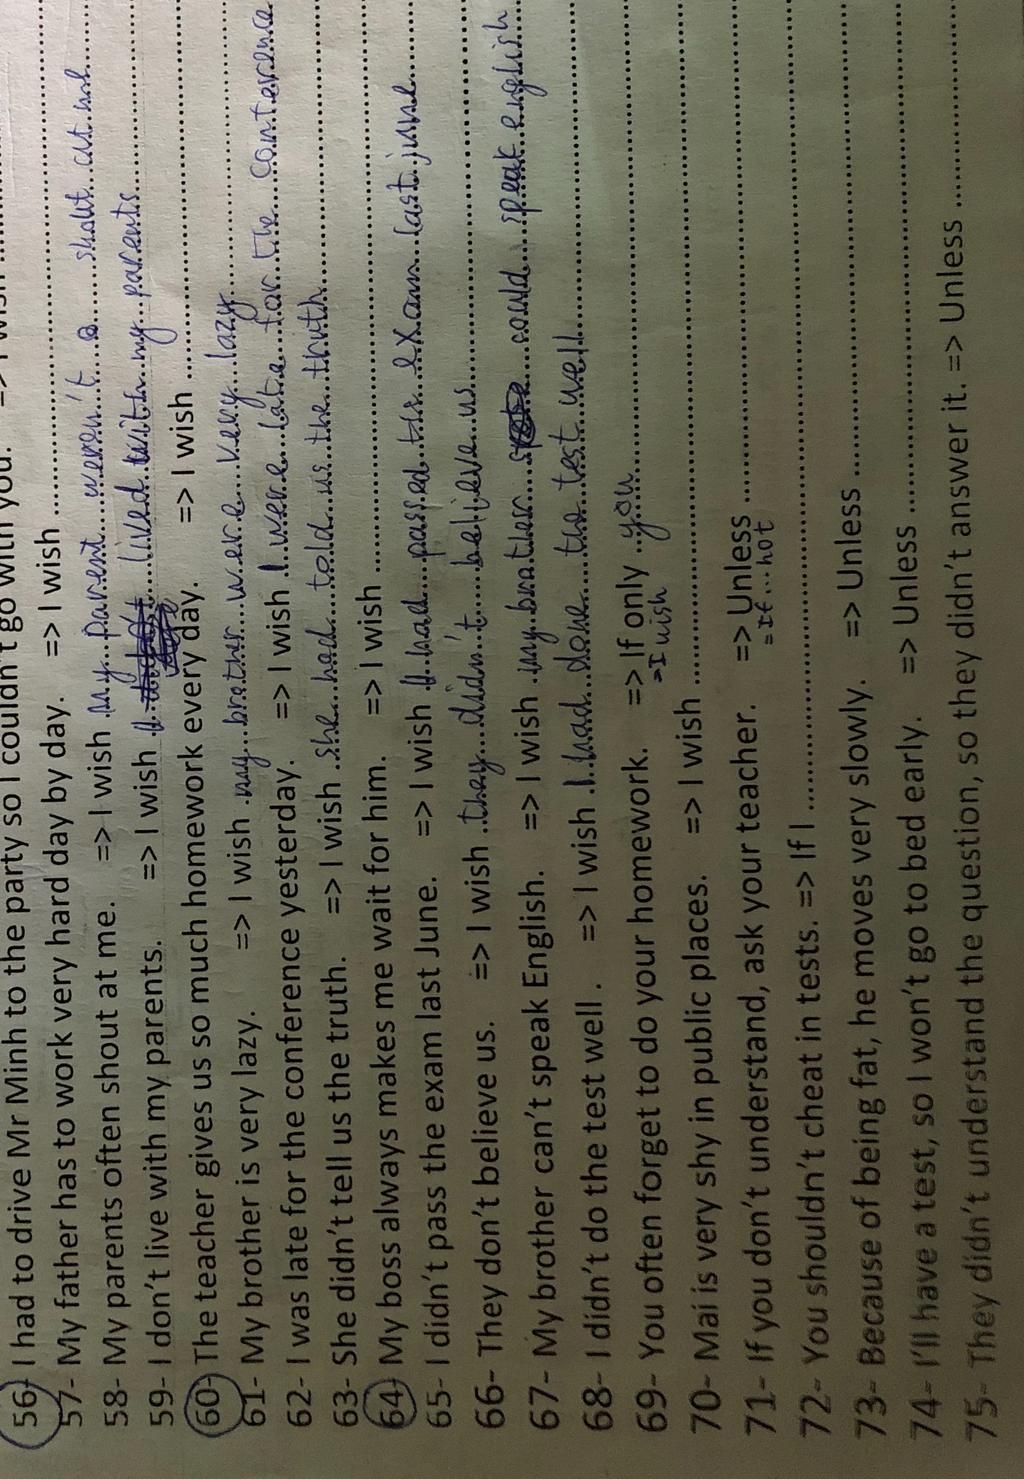 56- I had to drive Mr Minh to the party so I couldn't go with you. => I wish
57- My father has to work very hard day by day. => I wish ........................
58- My parents often shout at me. => I wish my parent weren't a shout at me
59- I don't live with my parents. => I wish I lived with my parents
60- The teacher gives us so much homework every day. => I wish ........................
61- My brother is very lazy. => I wish my brother were very lazy
62- I was late for the conference yesterday. => I wish I were late for the conterence
63- She didn't tell us the truth. => I wish she had told us the thuth
64- My boss always makes me wait for him. => I wish ........................
65- I didn't pass the exam last June. => I wish I had passed the exam last june
66- They don't believe us. => I wish they didn't believe us
67- My brother can't speak English. => I wish my brother could speak english
68- I didn't do the test well. => I wish I had done the test well
69- You often forget to do your homework. => If only you
= I wish
70- Mai is very shy in public places. => I wish ........................
71- If you don't understand, ask your teacher. => Unless ........................
= If...not
72- You shouldn't cheat in tests. => If I ........................
73- Because of being fat, he moves very slowly. => Unless ........................
74- I'll have a test, so I won't go to bed early. => Unless ........................
75- They didn't understand the question, so they didn't answer it. => Unless ........................